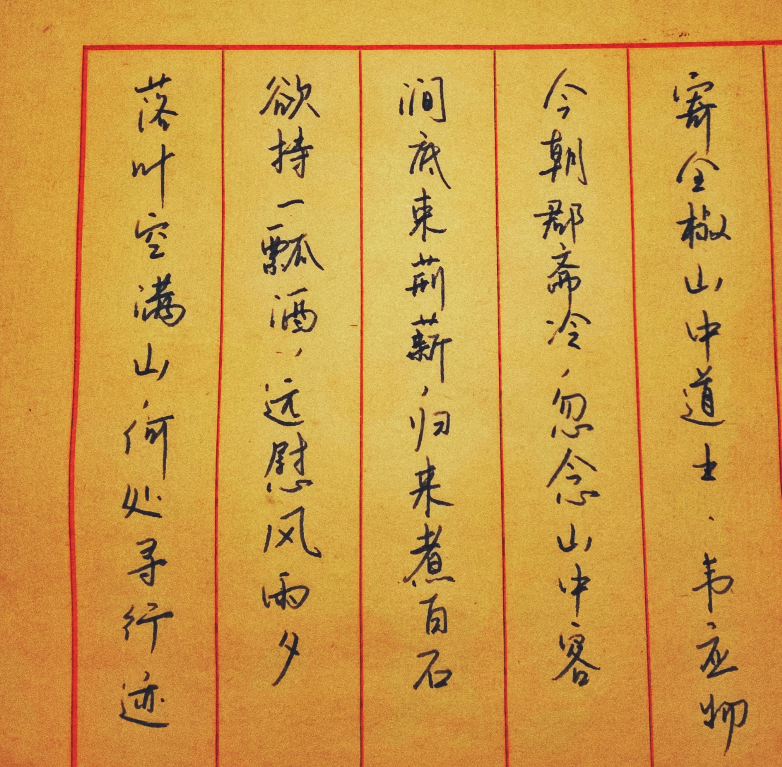 寄全椒山中道士、韦应物
今朝郡斋冷，忽念山中客
涧底束荆薪，归来煮白石
欲持一瓢酒，远慰风雨夕
落叶空满山，何处寻行迹